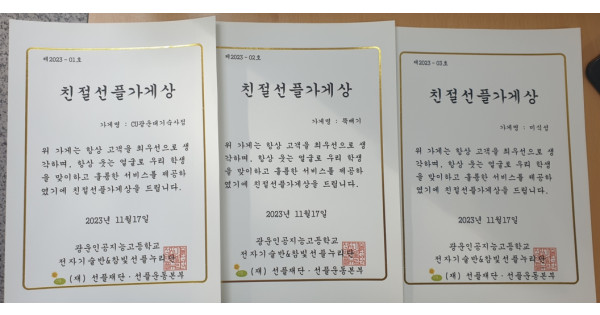 제2023-01호
친절선플가게상
가게명 : CU광운
위 가게는 항상 고객을 최우선으로 생
각하며, 항상 웃는 얼굴로 우리 학생
을 맞이하고 훌륭한 서비스를 제공하
였기에 친절선플가게상을 드립니다.
2023년 11월17일
광운인공지능고등학교
전자기술반&참빛선플누리단
(재) 선플재단·선플운동본부
제2023-02호
친절선플가게상
가게명 : 뚝배기
위 가게는 항상 고객을 최우선으로 생
각하며, 항상 웃는 얼굴로 우리 학생
을 맞이하고 훌륭한 서비스를 제공하
였기에 친절선플가게상을 드립니다.
2023년 11월17일
광운인공지능고등학교
전자기술반&참빛선플누리단
(재) 선플재단·선플운동본부
제2023-03호
친절선플가게상
가게명 : 미식성
위 가게는 항상 고객을 최우선으로 생
각하며, 항상 웃는 얼굴로 우리 학생
을 맞이하고 훌륭한 서비스를 제공하
였기에 친절선플가게상을 드립니다.
2023년 11월17일
광운인공지능고등학교
전자기술반&참빛선플누리단
(재) 선플재단·선플운동본부